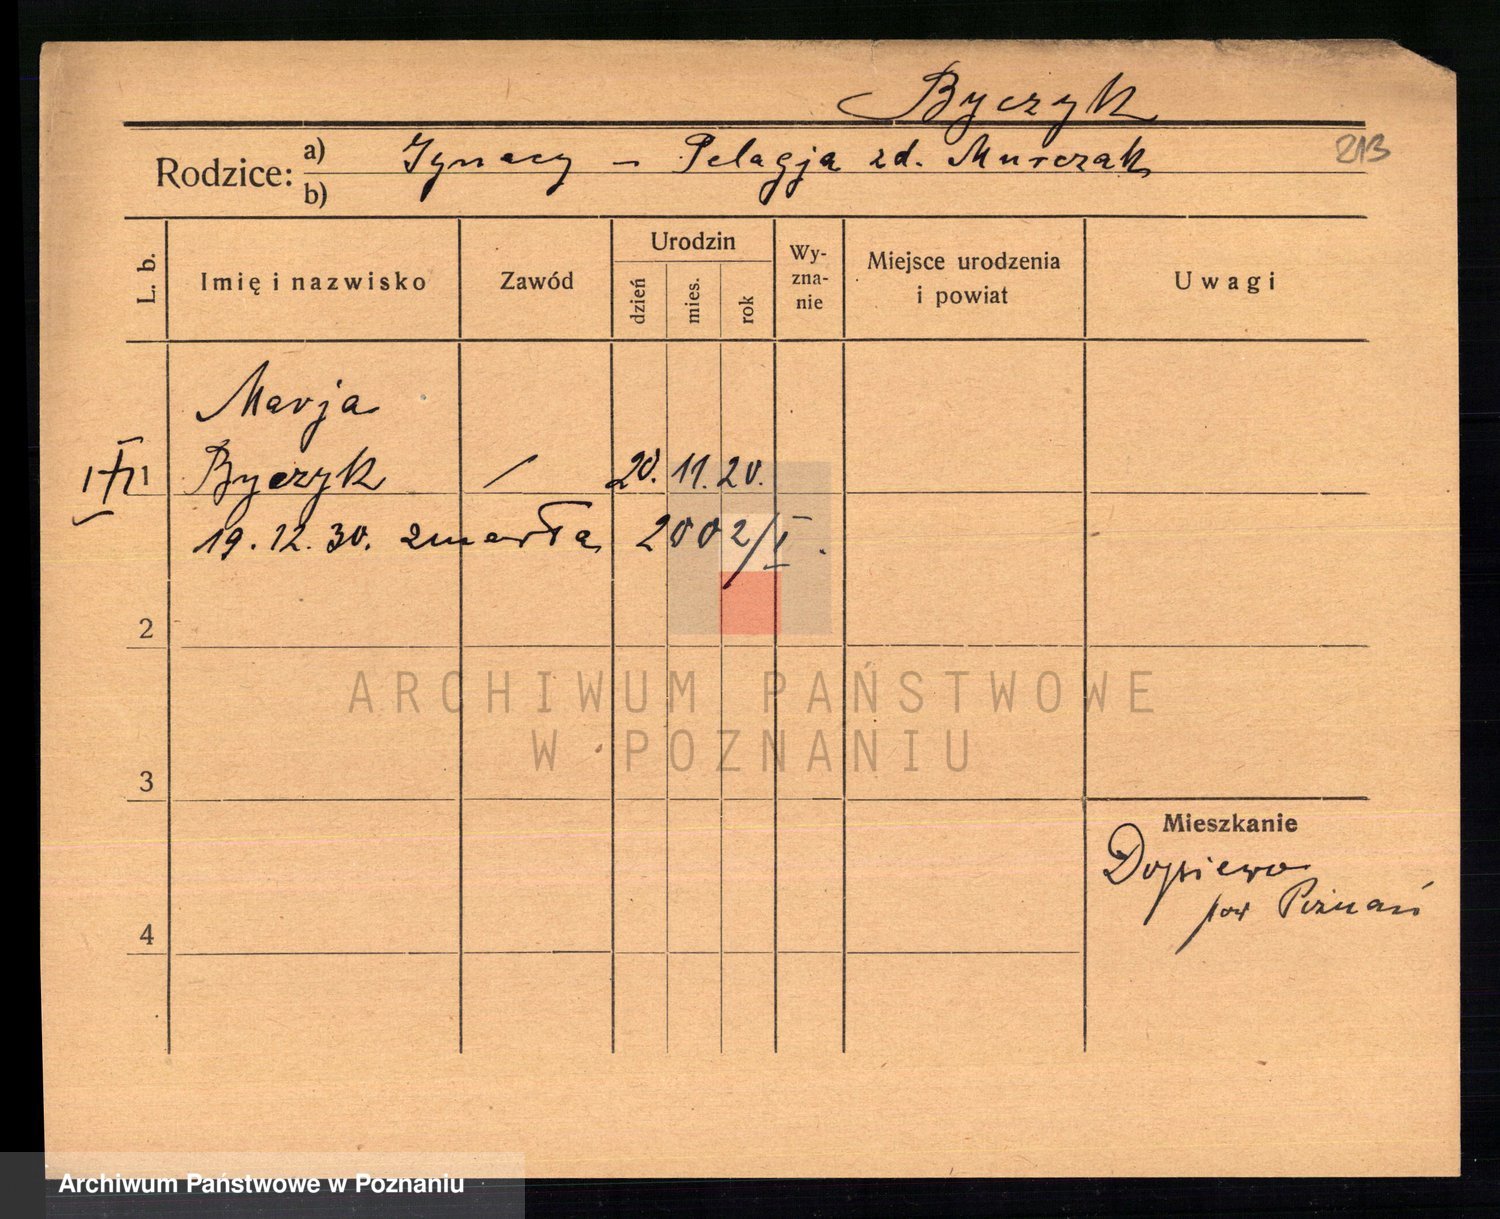 Byczyk
Rodzice: a) Ignacy – Pelagja zd. Murczak 213
b)
L. b. Imię i nazwisko Zawód Urodzin dzień mies. rok Wy-zna-nie Miejsce urodzenia i powiat Uwagi
Marja
1 Byczyk / 20. 11. 20.
19. 12. 30. zmarła 2002/I.
2
ARCHIWUM PAŃSTWOWE
W POZNANIU
3
Mieszkanie
Dopiewo
pow Poznań
4
Archiwum Państwowe w Poznaniu